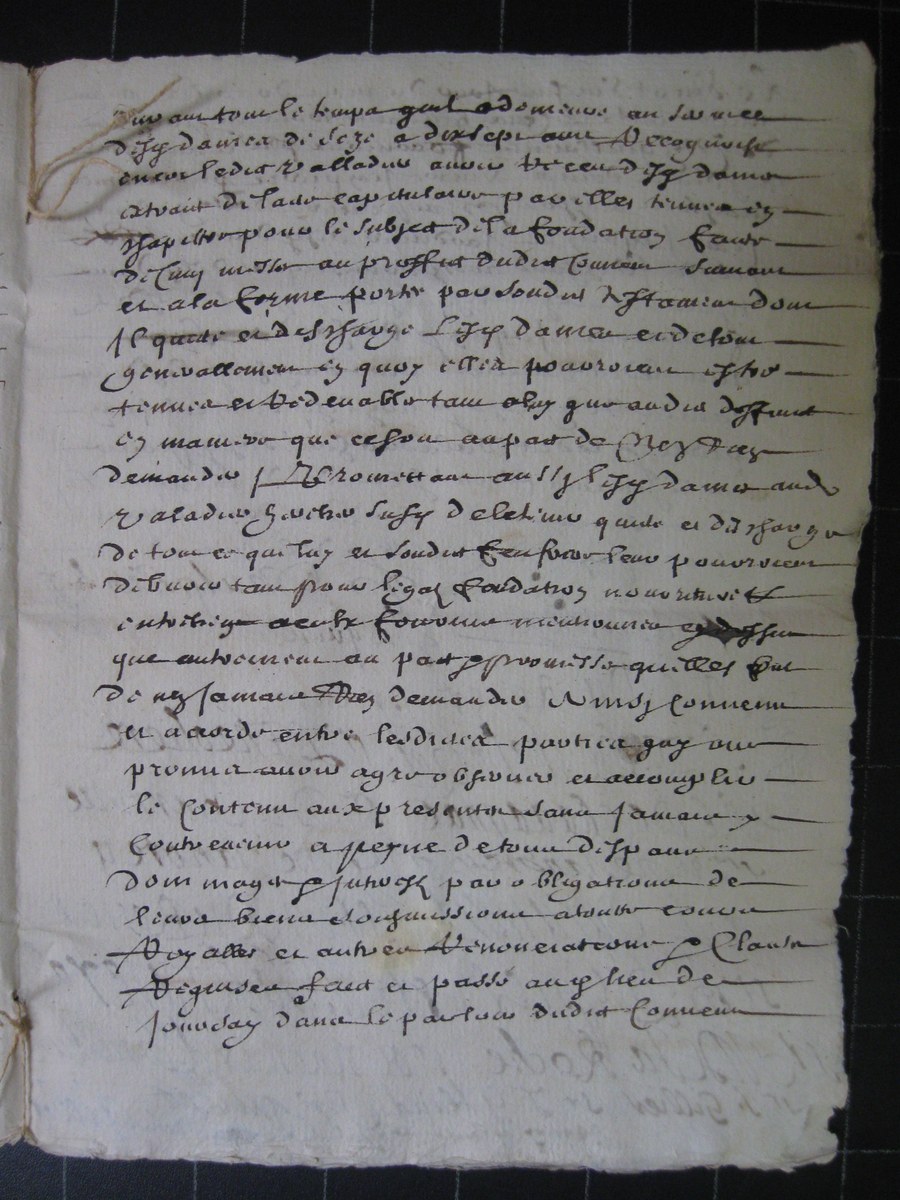 durant tout le temps quil a demeuré au service
desd dames de seze a dix sept ans Recognoist
encor ledict Valladier avoir Receu desd dames
extraict de lacte capitulaire par elles tenue en
chapitre pour le subject de la fondation faicte
messe au proffict dudict Convent suivant
et a la forme porté par sondict testament dont
Il quicte et descharge lesd dames et de tout
generallement en quoy elles pourroient estre
tenues et Redevable tant a luy que audict deffunt
en maniere que ce soit au pact de Rien
demander / Promettant aussy lesd dames aud
Valadier quicte et descharge
de tout ce que luy et sondict feu frere leur pouvoient
debvoir tant pour legat fondation nourriture et
entretien mentionnes
que autrement au pact et promesse quelles font
de ny Jamais Rien demander Ainsy Convenu
et acordé entre lesdictes parties quy ont
promis avoir agre observer et accomplir
le Contenu aux presentes sans Jamais y
Contrevenir a peyne de tous despans
dommages et Intherestz par obligations de
leurs biens et soubmissions a toutes cours
Royalles et autres Renonciations et Clause
Requises faict et passé aud lieu de
dans le parloir dudict Convent